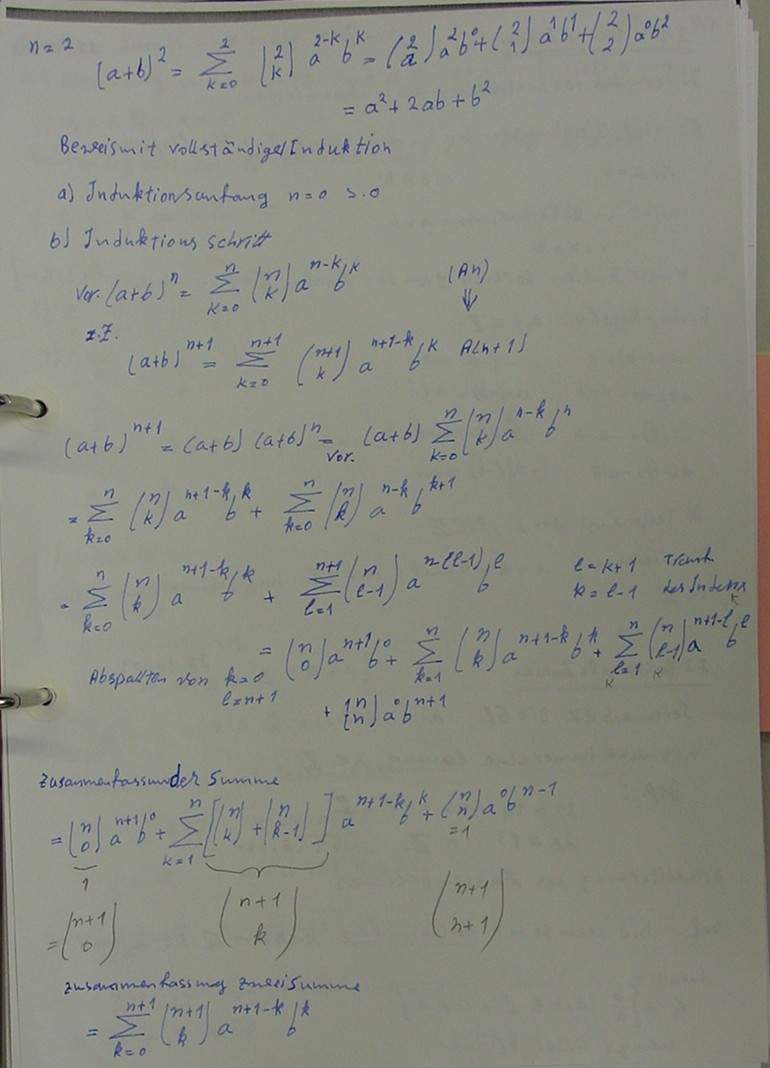 n=2
(a+b)^2 = Σ_{k=0}^{2} (2 k) a^{2-k} b^k = (2 a) a^2 b^0 + (2 1) a^1 b^1 + (2 2) a^0 b^2
= a^2 + 2ab + b^2
Beweis mit vollständiger Induktion
a) Induktionsanfang n=0 s.o
b) Induktions schritt
Vor. (a+b)^n = Σ_{k=0}^{n} (n k) a^{n-k} b^k (An)
⇓
z.Z.
(a+b)^{n+1} = Σ_{k=0}^{n+1} (n+1 k) a^{n+1-k} b^k A(n+1)
(a+b)^{n+1} = (a+b) (a+b)^n =_{Vor.} (a+b) Σ_{k=0}^{n} (n k) a^{n-k} b^n
= Σ_{k=0}^{n} (n k) a^{n+1-k} b^k + Σ_{k=0}^{n} (n k) a^{n-k} b^{k+1}
= Σ_{k=0}^{n} (n k) a^{n+1-k} b^k + Σ_{l=1}^{n+1} (n l-1) a^{n-(l-1)} b^l l=k+1
k=l-1 des Indexes
k
= (n 0) a^{n+1} b^0 + Σ_{k=1}^{n} (n k) a^{n+1-k} b^k + Σ_{l=1}^{n} (n l-1) a^{n+1-l} b^l
k k
Abspalten von k=0
l=n+1
+ (n n) a^0 b^{n+1}
Zusammenfassun der Summe
= (n 0) a^{n+1} b^0 + Σ_{k=1}^{n} [(n k) + (n k-1)] a^{n+1-k} b^k + (n n) a^0 b^{n-1}
=1
1
= (n+1 0) (n+1 k) (n+1 n+1)
zusammenfassung zwei Summe
= Σ_{k=0}^{n+1} (n+1 k) a^{n+1-k} b^k